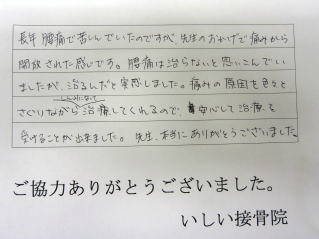 長年腰痛で苦しんでいたのですが、先生のおかげで痛みから
開放された感じです。腰痛は治らないと思いこんでい
ましたが、治るんだと実感しました。痛みの原因を色々と
しんみになって
さぐりながら治療してくれるので、安心して治療を
受けることが出来ました。先生、本当にありがとうございました。
ご協力ありがとうございました。
いしい接骨院